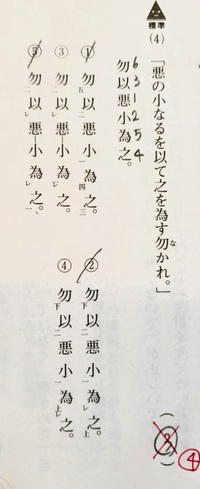 標準
(4)
「悪の小なるを以て之を為す勿かれ。」
な
勿以悪小為之。
6 3 1 2 5 4
① 勿五以二悪小一為四之三。
② 勿下以二悪小一為レ之上。
③ 勿以レ悪小為レ之。
④ 勿下以二悪小一為上レ之。
⑤ 勿二以レ悪小為レ之一。
(③)
④